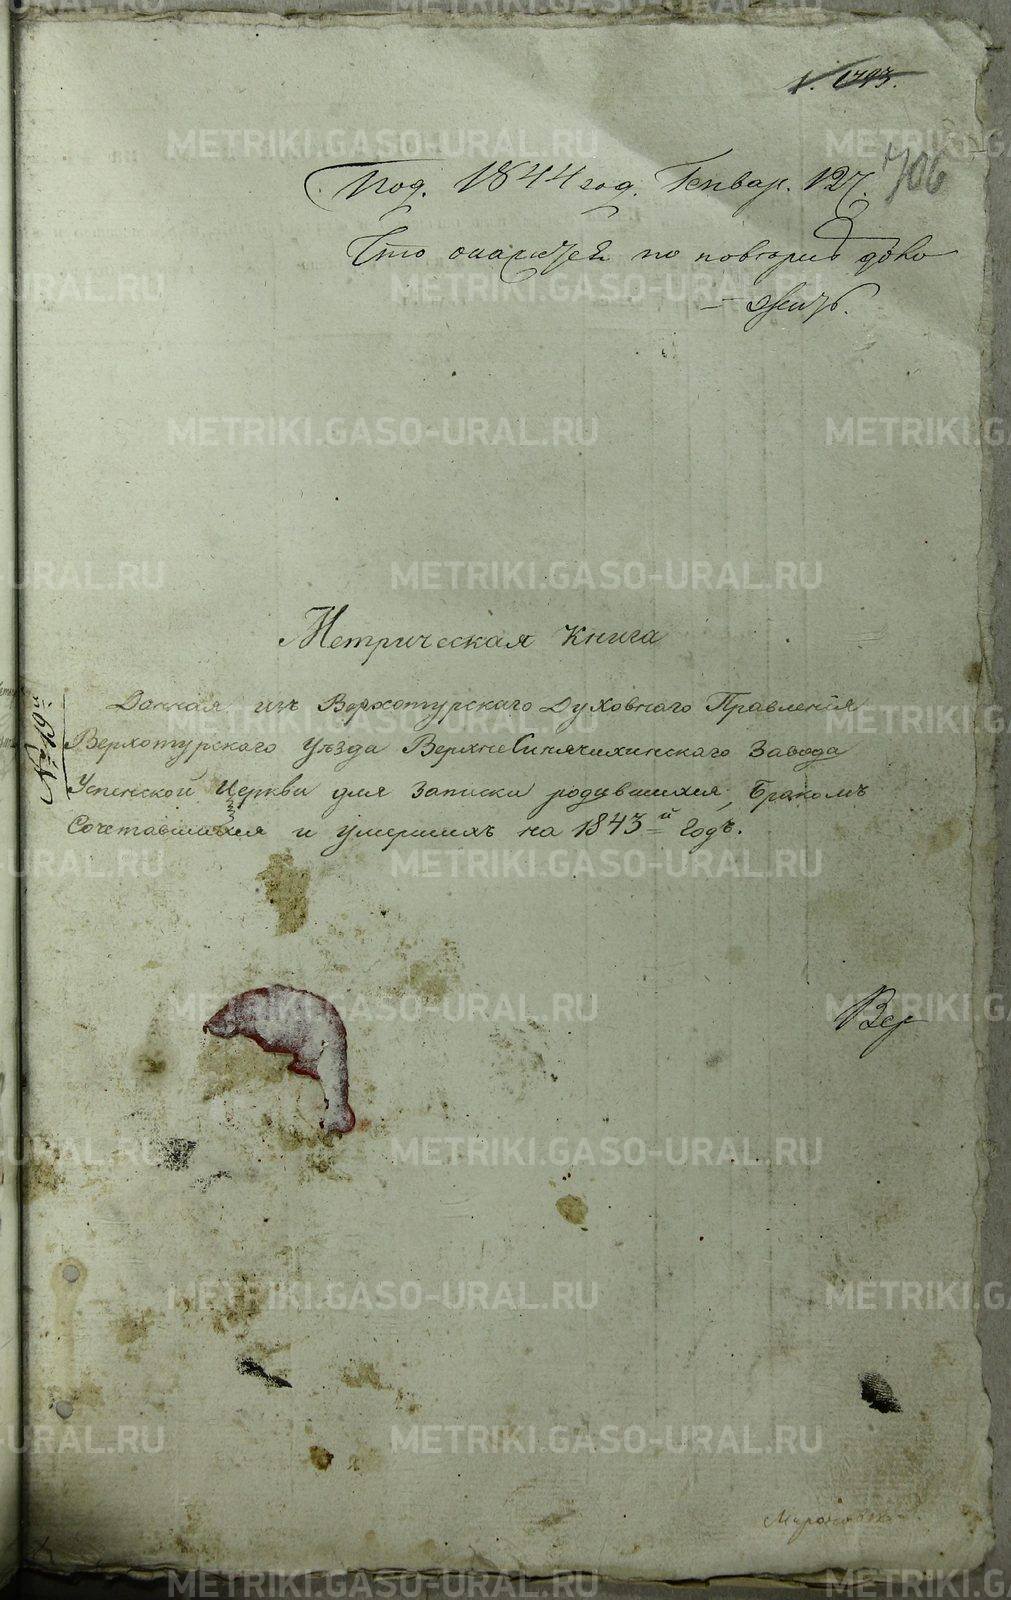 1793.
706
Под. 1844 год. Генвар. 127.
Что окажется по повѣркѣ доло
= жить.
Метрическая книга
Данная изъ Верхотурскаго Духовнаго Правленія
№ 19й
Верхотурскаго уѣзда ВерхнеСинячихинскаго завода
Успенской Церкви для записки родившихся, бракомъ
Сочетавшихся и умершихъ на 1843й годъ.
Вер
METRIKI.GASO-URAL.RU